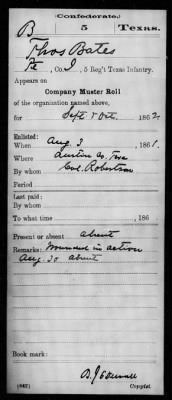 (Confederate.)
B 5 Texas.
Thos Bates
Pt, Co. I, 5 Reg't Texas Infantry.
Appears on
Company Muster Roll
of the organization named above,
for Sept & Oct, 1862.
Enlisted:
When Aug 3, 1861.
Where Austin Co. Texs
By whom Col. Robertson
Period
Last paid:
By whom
To what time , 186
Present or absent absent
Remarks: Wounded in action
Aug. 30 absent
Book mark:
(642) Copyist.